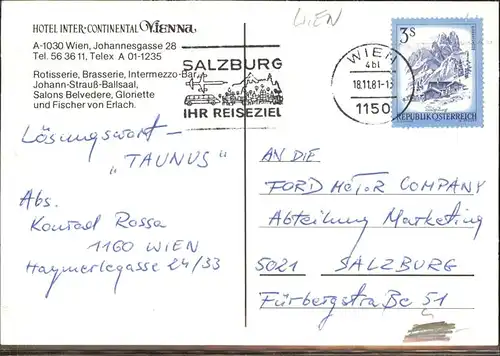 HOTEL INTER-CONTINENTAL Vienna
A-1030 Wien, Johannesgasse 28
Tel. 56 36 11, Telex A 01-1235
Rotisserie, Brasserie, Intermezzo-Bar,
Johann-Strauß-Ballsaal,
Salons Belvedere, Gloriette
und Fischer von Erlach.
Lösungswort –
„TAUNUS"
Abs.
Konrad Rossa
1160 WIEN
Haymerlegasse 24/33
WIEN
SALZBURG
IHR REISEZIEL
WIEN
4bl
18.11.81-1
1150
3 S
REPUBLIK ÖSTERREICH
AN DIE
FORD MOTOR COMPANY
Abteilung Marketing
5021 SALZBURG
Fürbergstraße 51